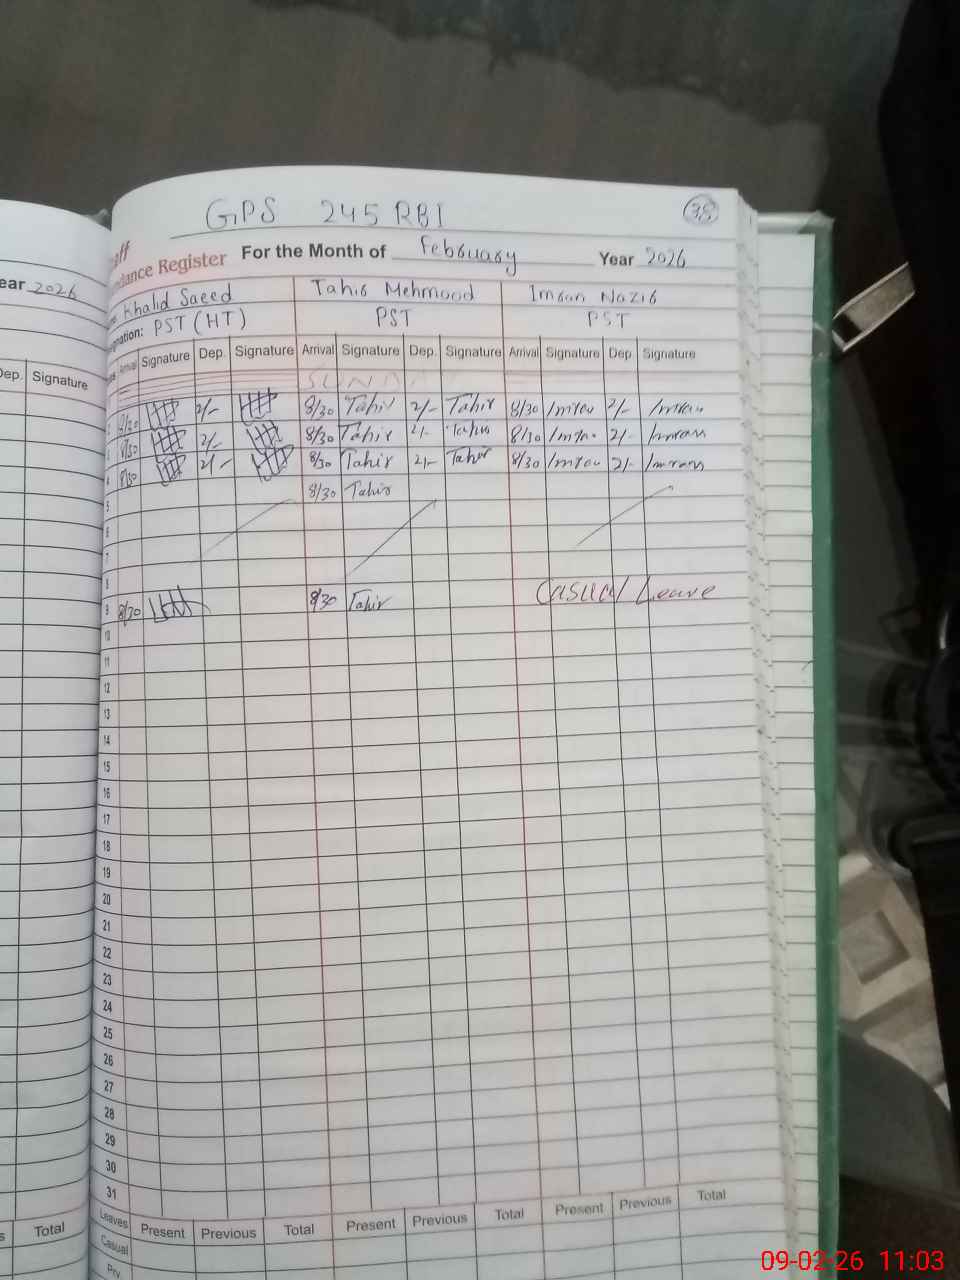 GPS 245 RBI
38
aff
dance Register For the Month of February Year 2026
ear 2026
Khalid Saeed Tahir Mehmood Imran Nazir
gnation: PST (HT) PST PST
Dep. Signature
Arrival Signature Dep. Signature Arrival Signature Dep. Signature Arrival Signature Dep. Signature
SUNDAY
2 8/30 2/- 8/30 Tahir 2/- Tahir 8/30 Imran 2/- Imran
3 8/30 2/- 8/30 Tahir 2/- Tahir 8/30 Imran 2/- Imran
4 8/30 2/- 8/30 Tahir 2/- Tahir 8/30 Imran 2/- Imran
5 8/30 Tahir
6
7
8
9 8/30 8/30 Tahir Casual Leave
10
11
12
13
14
15
16
17
18
19
20
21
22
23
24
25
26
27
28
29
30
31
Leaves Present Previous Total Present Previous Total Present Previous Total
s Total
Casual
Prv.
09-02-26 11:03